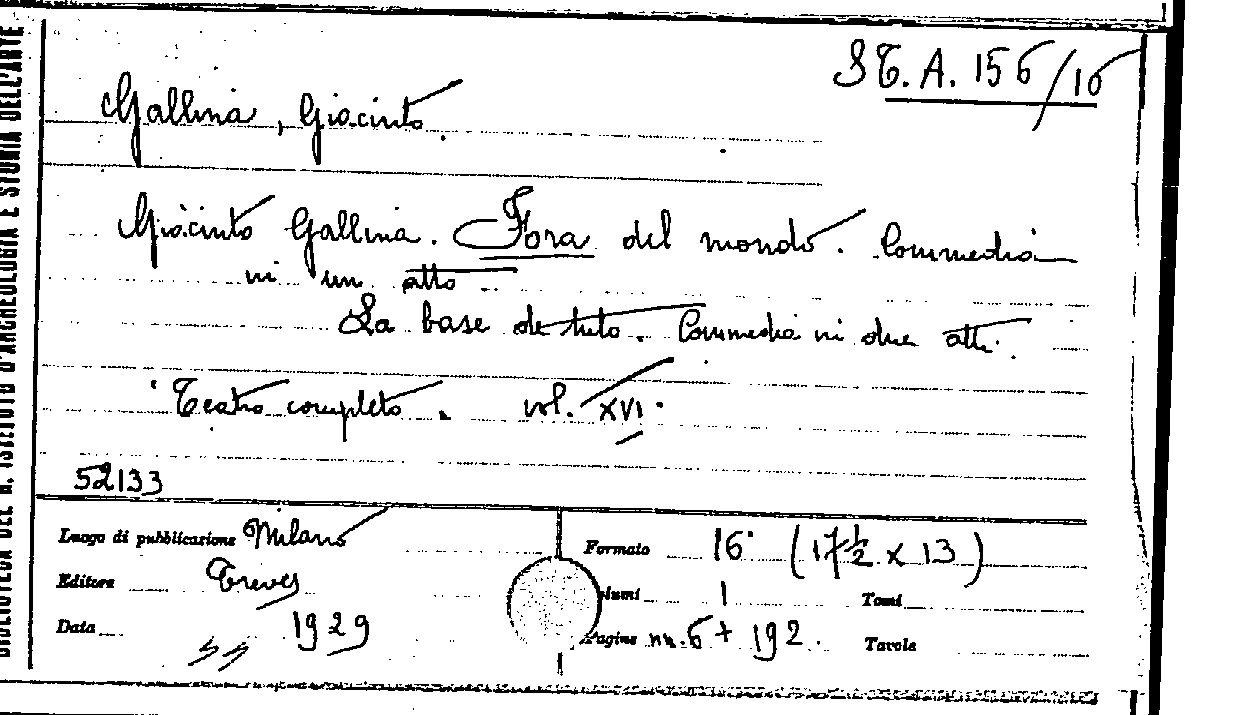 BIBLIOTECA DEL R. ISTITUTO D'ARCHEOLOGIA E STORIA DELL'ARTE
ST. A. 156/10
Gallina, Giacinto
Giacinto Gallina. Fora del mondo. Commedia
in un atto
La base de tuto. Commedia in due atti.
Teatro completo. vol. XVI.
52133
Luogo di pubblicazione Milano
Editore Treves
Data 1929
Formato 16° (17½ x 13)
lumi 1 Tomi
Pagine nn. 6 + 192. Tavole